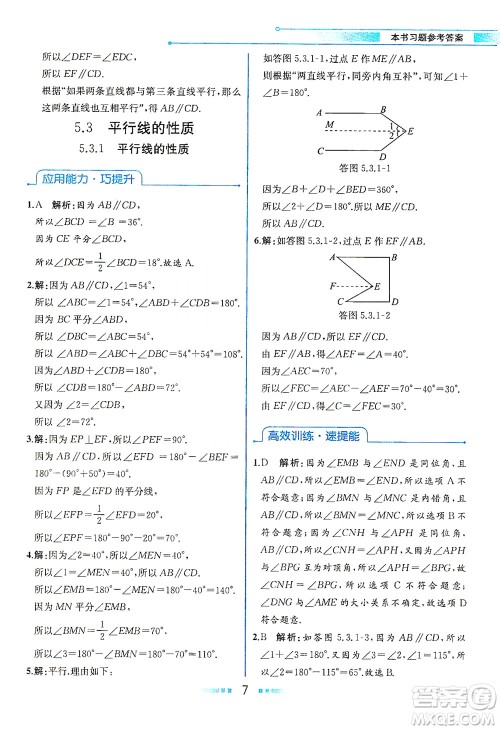 本书习题参考答案
所以∠DEF=∠EFD.
所以EF∥CD.
根据“如果两条直线都与第三条直线平行，那么
这两条直线也互相平行”，得AB∥CD.
5.3 平行线的性质
5.3.1 平行线的性质
应用能力·巧提升
1.A 解析：因为AB∥CD,
所以∠BCD=∠B=36°.
因为CE平分∠BCD,
所以∠DCE=1/2∠BCD=18°.故选A.
2.解：因为AB∥CD,∠1=54°,
所以∠ABC=∠1=54°.
因为BC平分∠ABD,
所以∠DBC=∠ABC=54°.
所以∠ABD=∠ABC+∠DBC=54°+54°=108°.
因为∠ABD+∠CDB=180°,
所以∠CDB=180°-∠ABD=72°.
又因为∠2=∠CDB,
所以∠2=72°.
3.解：因为EP⊥EF,所以∠PEF=90°.
因为∠BEP=50°,
所以∠BEF=∠BEP+∠PEF=140°.
因为AB∥CD,
所以∠BEF+∠EFD=180°.
所以∠EFD=40°.
因为FP是∠EFD的平分线,
所以∠EFP=1/2∠EFD=20°.
所以∠P=180°-90°-20°=70°.
4.解：因为∠2=40°,
所以∠EMB=180°-∠2=140°.
因为MN平分∠EMB,
所以∠BMN=1/2∠EMB=70°.
因为AB∥CD,
所以∠3+∠BMN=180°.
所以∠3=180°-∠BMN=110°.
5.解：平行.理由如下：
如答图5.3.1-1,过点E作EM∥AB,
则根据“两直线平行，同旁内角互补”,可得∠A+∠1
=180°.
A
B
M
1
2
E
C
D
答图5.3.1-1
因为∠A+∠AEC+∠C=360°,
所以∠2+∠C=180°.
所以EM∥CD.
所以AB∥CD.
6.解：如答图5.3.1-2,过点E作EF∥AB,
A
B
F
E
C
D
答图5.3.1-2
因为AB∥CD,
所以EF∥CD.
由EF∥AB,得∠AEF=∠A=20°.
因为∠AEC=70°,
所以∠FEC=∠AEC-∠AEF=50°.
由EF∥CD,得∠C=∠FEC=50°.
高效训练·速提能
1.D 解析：因为∠EMB与∠END是同位角,且
AB∥CD,所以∠EMB=∠END,所以选项A不
符合题意;因为∠BMN与∠MNC是内错角,且
AB∥CD,所以∠BMN=∠MNC,所以选项B不
符合题意;因为∠CNH与∠APH是同位角,且
AB∥CD,所以∠CNH=∠APH,又因为∠APH
与∠BPG为对顶角,所以∠APH=∠BPG,所以
∠CNH=∠BPG,所以选项C不符合题意;
∠DNG与∠AME的大小关系不确定,故选D.
2.B 解析：如答图5.3.1-3,因为AB∥CD,所以
∠1+∠3=180°.因为∠2=∠3,∠1=115°,所以
∠2=∠3=180°-115°=65°.故选B.
7